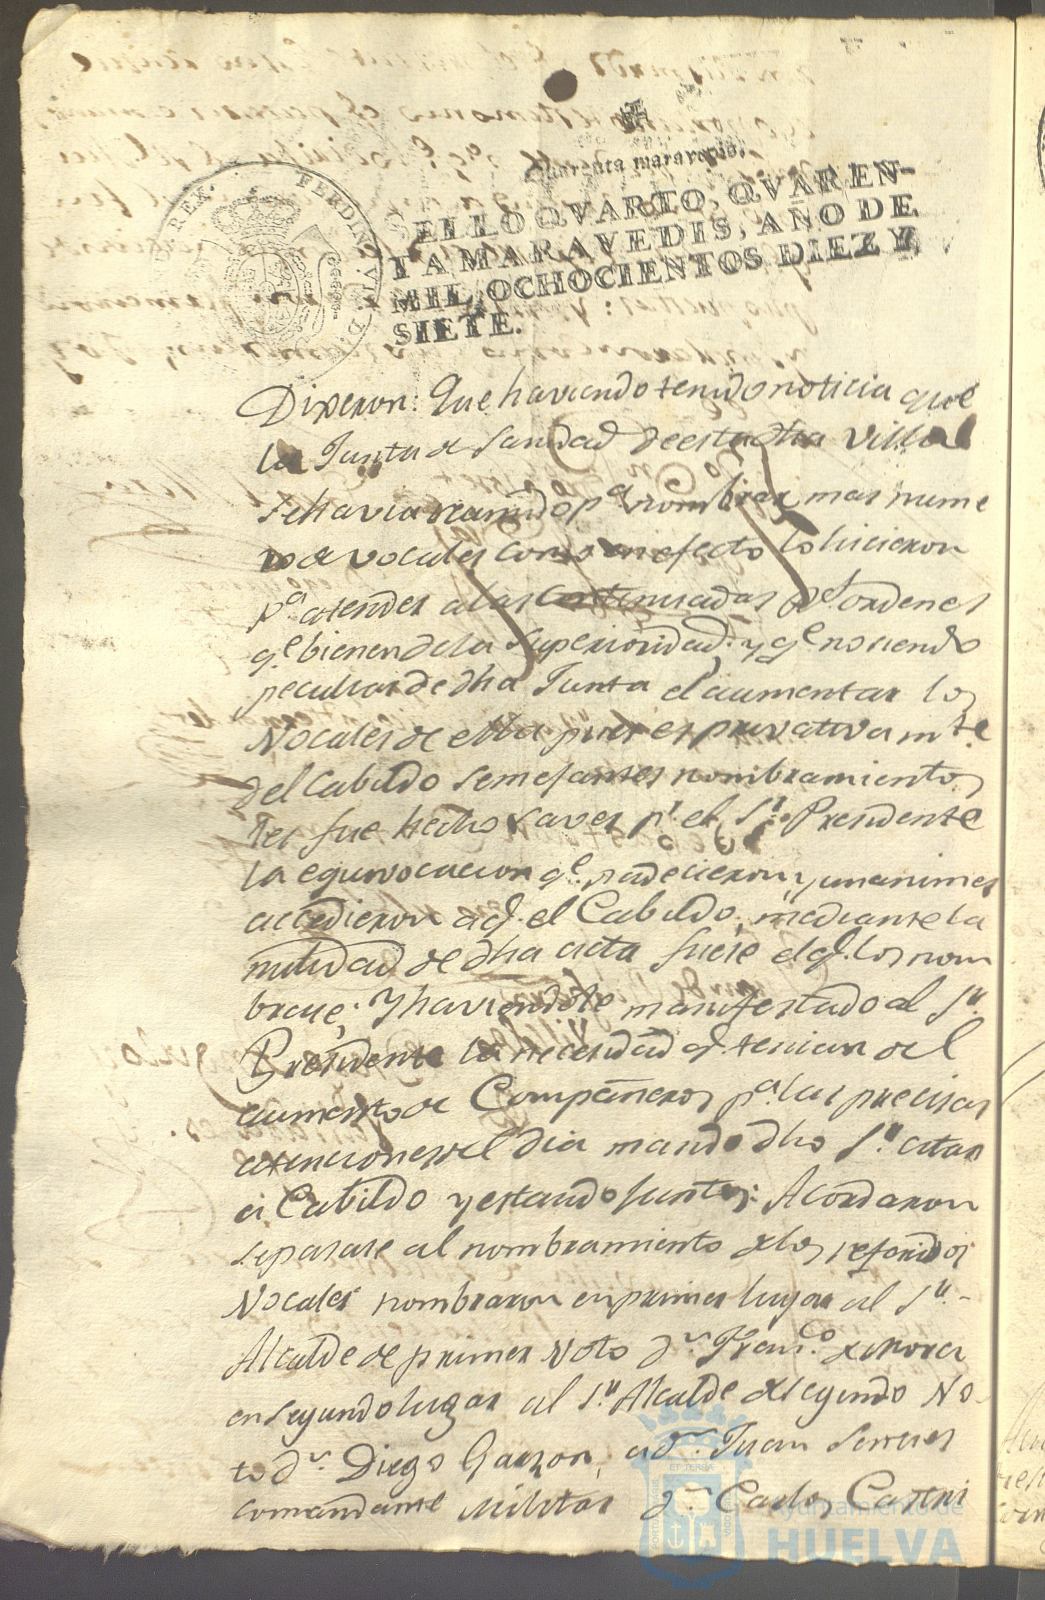 Quarenta maravedis.
SELLO QVARTO, QVAREN-
TA MARAVEDIS, AÑO DE
MIL OCHOCIENTOS DIEZ Y
SIETE.
REX.
FERDIN
Dixeron: Que haviendo tenido noticia que
la Junta de Sanidad de esta dha Villa
se havia reunido pa. nombrar mas nume
ro de vocales como en efecto lo hicieron
pa. atender a las continuadas Rs. ordenes
qe. bienen de la Superioridad; y qe. no siendo
peculiar de dha Junta el aumentar los
Vocales de ella pues es privativamte.
del Cabildo semejantes nombramientos
les fue hecho saver pr. el Sr. Presidente
la equivocacion qe. padecieron, y unanimes
accedieron a q. el Cabildo, mediante la
nulidad de dha acta fuese el q. los nom
brase; Y haviendole manifestado al Sr.
Presidente la necesidad q. tenian del
aumento de Compañeros pa. las precisas
atenciones del dia mando dho Sr. citar
a Cabildo y estando juntos: Acordaron
se pasase al nombramiento de los referidos
Vocales nombraron en primer lugar al Sr.
Alcalde de primer Voto Dn. Franco. de Mora
en segundo lugar al Sr. Alcalde de segundo Vo
to Dn. Diego Garzon, a Dn. Juan
comandante Militar Dn. Carlos
Ayuntamiento de
HUELVA